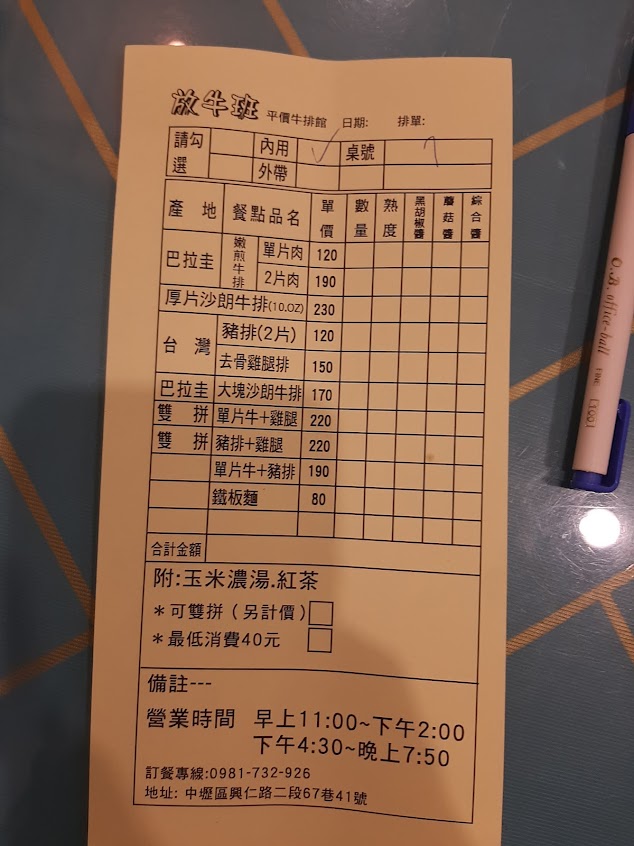 放牛班 平價牛排館 日期: 排單:
請勾選 內用 ✓ 桌號
外帶
產地 餐點品名 單價 數量 熟度 黑胡椒醬 蘑菇醬 綜合醬
巴拉圭 嫩煎牛排 單片肉 120
2片肉 190
厚片沙朗牛排(10.OZ) 230
台灣 豬排(2片) 120
去骨雞腿排 150
巴拉圭 大塊沙朗牛排 170
雙拼 單片牛+雞腿 220
雙拼 豬排+雞腿 220
單片牛+豬排 190
鐵板麵 80
合計金額
附:玉米濃湯.紅茶
*可雙拼(另計價)
*最低消費40元
備註---
營業時間 早上11:00~下午2:00
下午4:30~晚上7:50
訂餐專線:0981-732-926
地址: 中壢區興仁路二段67巷41號
O.B. office-ball FINE [100]